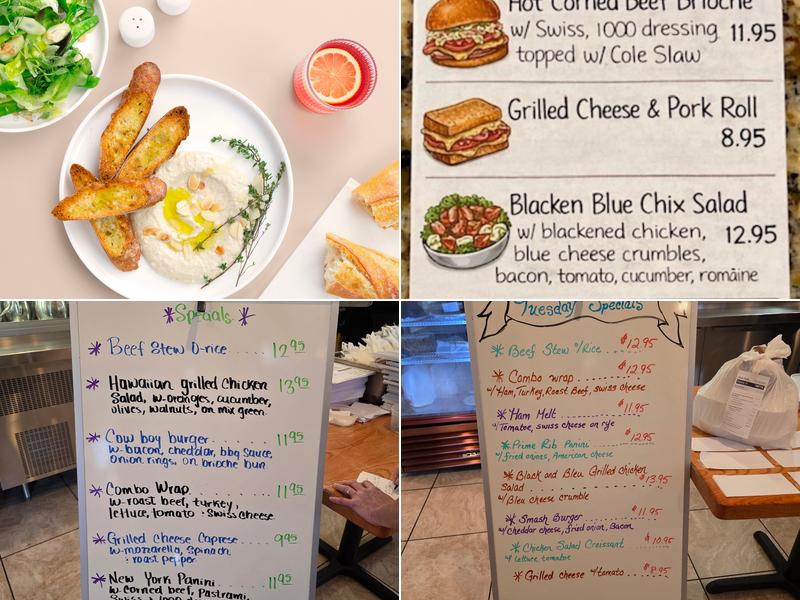 Hot Corned Beef Brioche
w/ Swiss, 1000 dressing 11.95
topped w/ Cole Slaw
Grilled Cheese & Pork Roll
8.95
Blacken Blue Chix Salad
w/ blackened chicken, 12.95
blue cheese crumbles,
bacon, tomato, cucumber, romaine
*Specials*
* Beef Stew O-rice....... 12.95
* Hawaiian grilled Chicken 13.95
Salad, w-oranges, cucumber,
olives, walnuts, on mix green
* Cow boy burger....... 11.95
w-bacon, cheddar, bbq sauce
onion rings, on brioche bun
* Combo Wrap....... 11.95
w-roast beef, turkey,
lettuce, tomato : swiss cheese
* Grilled cheese Caprese.. 9.95
w-mozzarella, spinach
: roast pepper
* New York Panini.... 11.95
w-corned beef, Pastrami,
Tuesday Specials
* Beef Stew w/Rice...... $12.95
* Combo wrap........ $12.95
w/ Ham, Turkey, Roast Beef, swiss cheese
* Ham Melt....... $11.95
w/ Tomatoe, swiss cheese on rye
* Prime Rib Panini..... $12.95
w/ fried onions, American cheese
* Black and Bleu Grilled chicken
Salad....... $13.95
w/ Bleu cheese crumble
* Smash Burger....... $11.95
w/ Cheddar cheese, fried onion, Bacon
* Chicken Salad Croissant.... $10.95
w/ lettuce tomatoe
* Grilled cheese w/tomato... $8.95